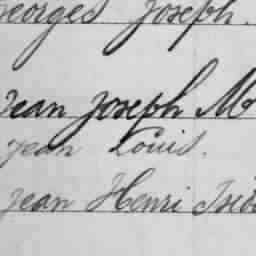 Georges Joseph.
Jean Joseph M
Jean Louis.
Jean Henri Isido